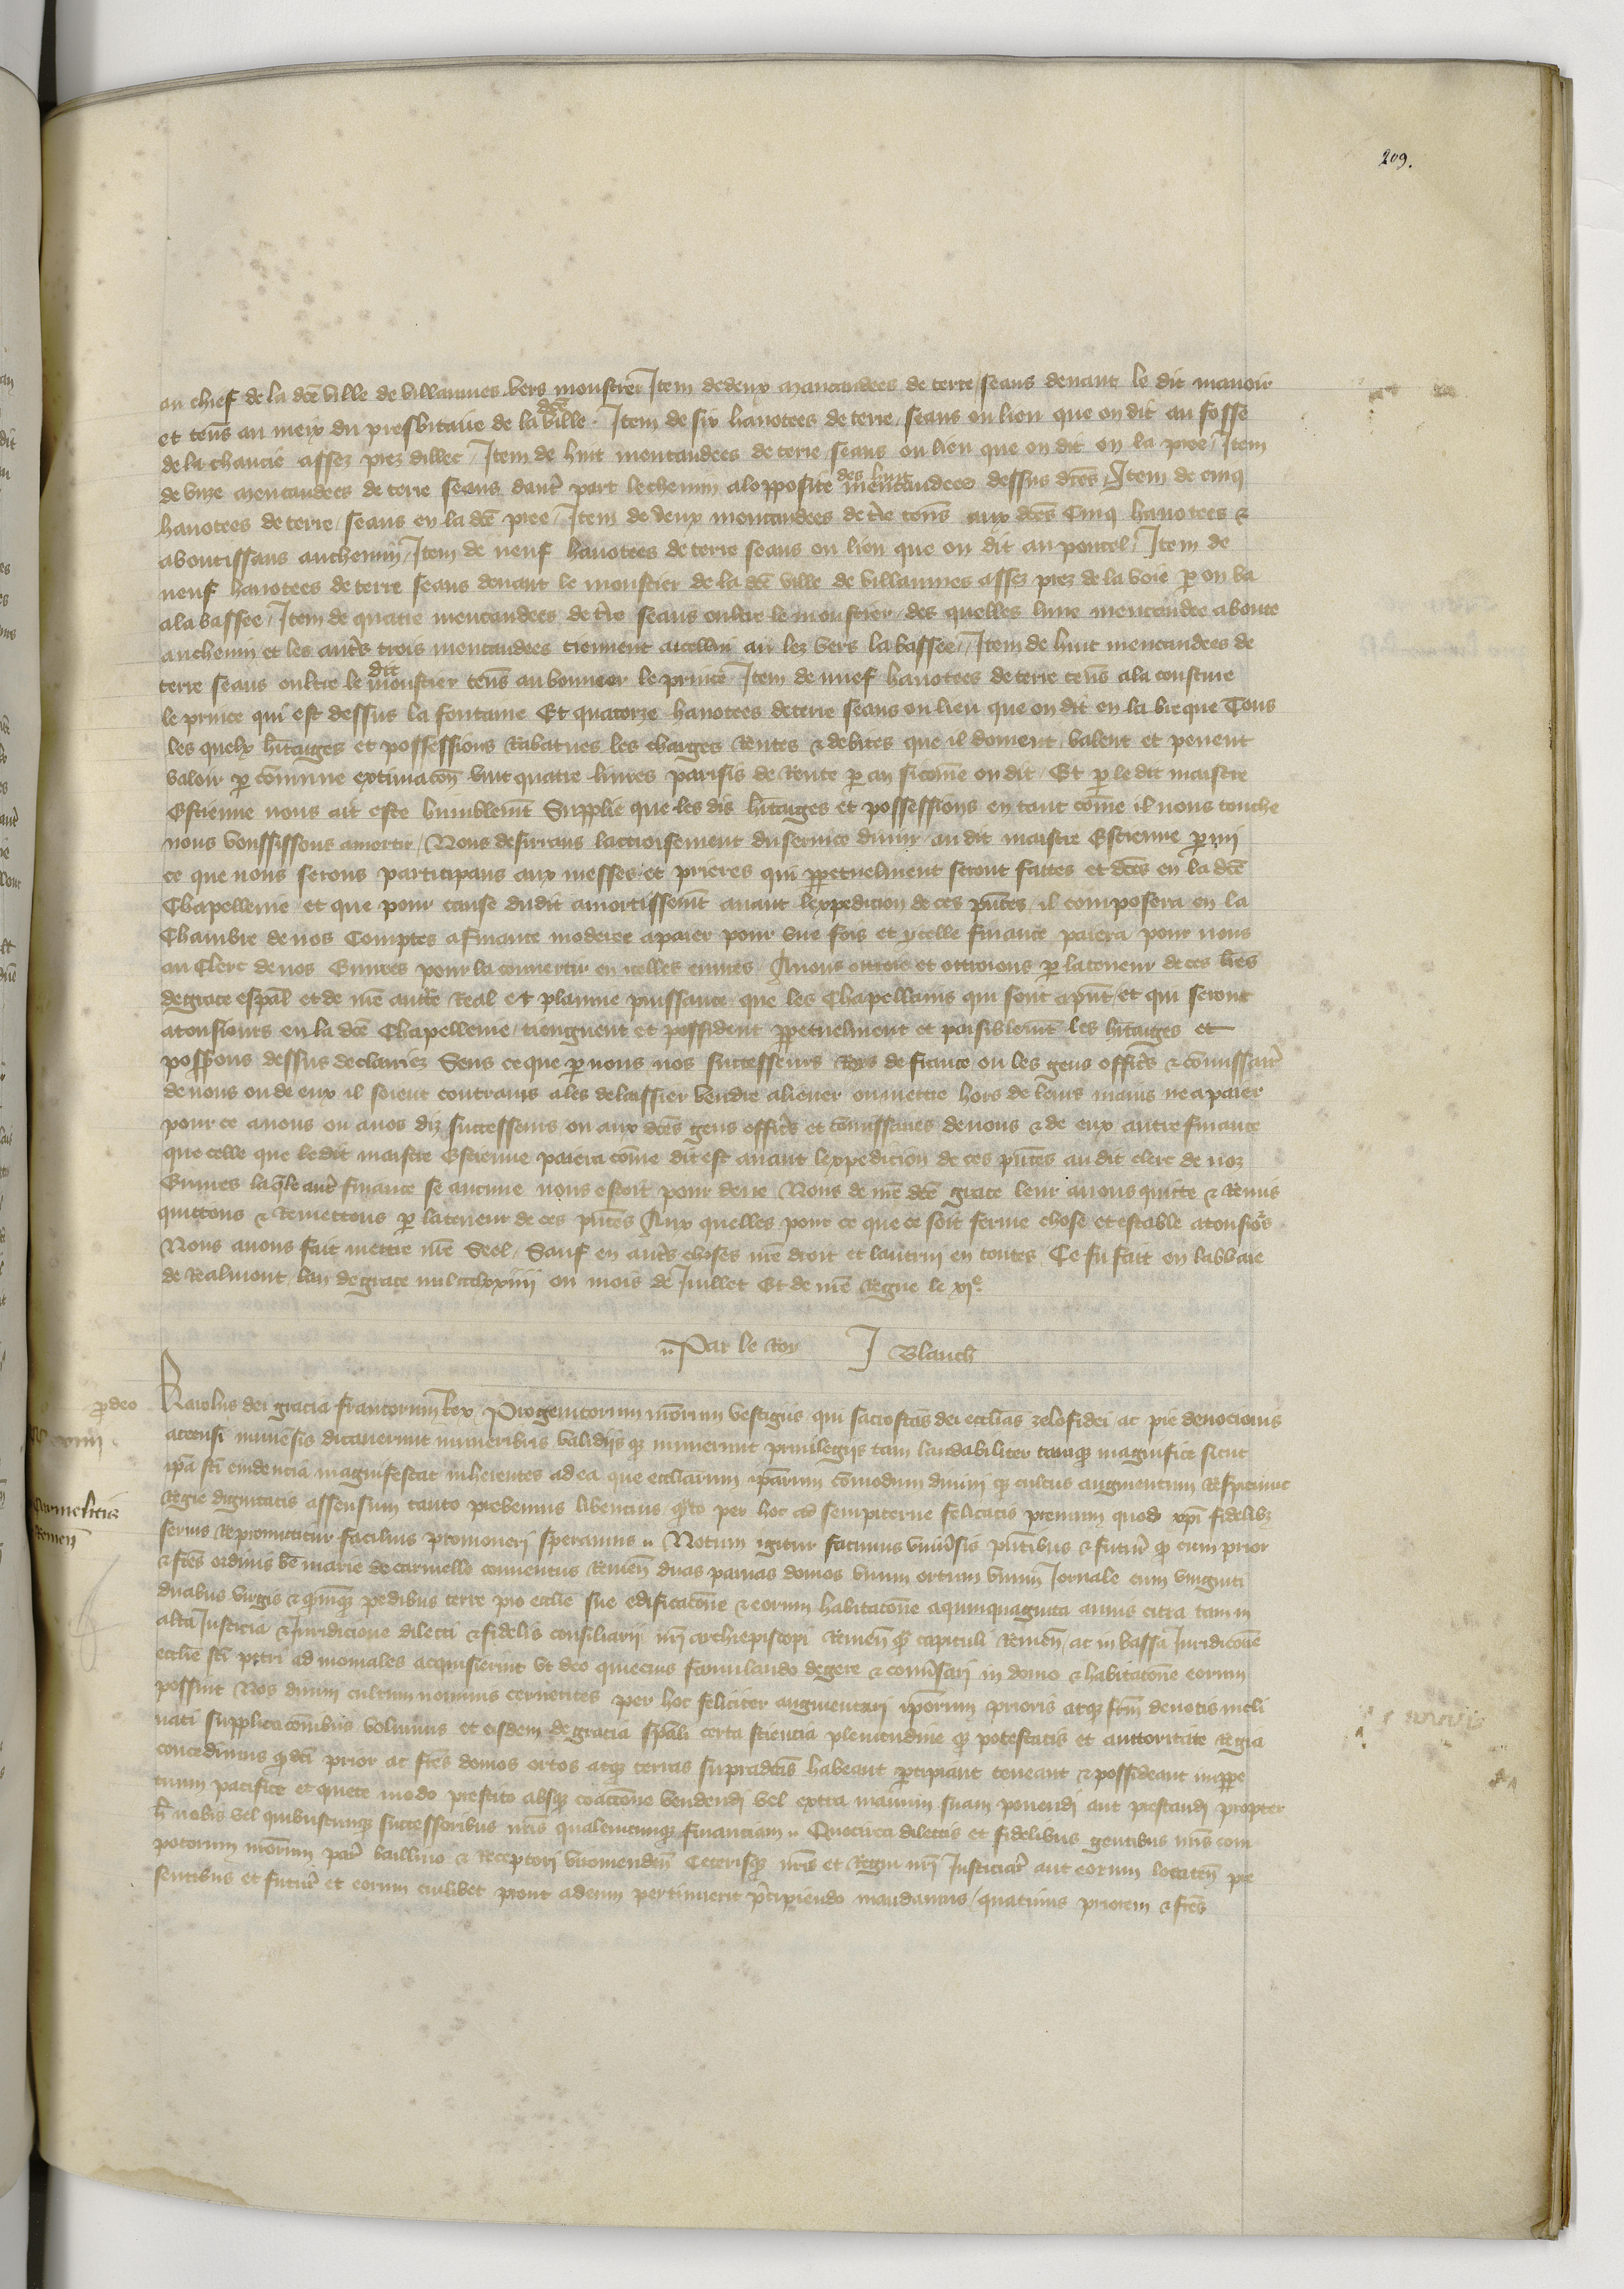 209.
au chief de la dce ville de villannes vers moustrer Item de deux mencaudees de terre seans deuant le dit manoir
et tens au meix du presbitaire de la dce ville. Item de six hauotees de terre seans ou lieu que on dit au fosse
de la chaucie assez prez dillec, Item de huit mencaudees de terre seans ou lieu que on dit en la pree, Item
de unze mencaudees de terre seans dautr part le chemin a lopposite des huit mencaudees dessus dces, Item de cinq
hauotees de terre, seans en la dce pree, Item de deux mencaudees de tre tens aux dces Cinq hauotees &
aboutissans au chemin, Item de neuf hauotees de terre seans ou lieu que on dit au poncel, Item de
neuf hauotees de terre seans deuant le moustier de la dce ville de villannes assez prez de la voie p on va
a la bassee, Item de quatre mencaudees de tre seans oultre le moustier, des quelles lune mencaudee aboute
au chemin et les autrs trois mencaudees tiennent a icellui au lez vers la bassee, Item de huit mencaudees de
terre seans oultre le dit moustier tens au bonneer le prince Item de nuef hauotees de terre tens a la cousture
le prince qui est dessus la fontaine Et quatorze hauotees de terre seans ou lieu que on dit en la bieque Tous
les quelx hitaiges et possessions Rabatues les charges Rentes & debites que il doiuent valent et peuent
valoir p commune extimacon vint quatre liures parisis de Rente p an sicome on dit, Et p le dit maistre
Estienne nous ait este humblemt Supplie que les dis hitaiges et possessions en tant come il nous touche
nous voussissons amortir, Nous desirans lacroissement du seruice diuin au dit maistre Estienne pmi
ce que nous serons participans aux messes et prieres qui ppetuelment seront faittes et dces en la dce
Chapellenie et que pour cause dudit amortissemt auant lexpedicion de ces pntes il composera en la
Chambre de nos Comptes a finance moderee a paier pour une fois et ycelle finance paiera pour nous
au Clerc de nos Euures pour la conuertir en icelles euures, Auons ottroie et ottroions p la teneur de ces lres
de grace espal et de nre autte Real et plainne puissance que les Chapellains qui sont a pnt et qui seront
a tousiours en la dce Chapellenie tiengnent et possident ppetuelment et paisiblemt les hitaiges et
possions dessus declairiez Sens ce que p nous nos successeurs Roys de france ou les gens officrs & comissair
de nous ou de eux il soient contrains a les delaissier vendre aliener ou mettre hors de leurs mains ne a paier
pour ce a nous ou a nos diz successeurs ou aux dces gens officrs et comissaires de nous & de eux autre finance
que celle que le dit maistre Estienne paiera come dit est auant lexpedicion de ces pntes au dit clerc de noz
Euures laqle autr finance se aucune nous estoit pour deue Nous de nre dce grace leur auons quitte & Remis
quittons & Remettons p la teneur de ces pntes Aux quelles pour ce que ce soit ferme chose et estable a tousiors
Nous auons fait mettre nre Seel, Sauf en autrs choses nre droit et lautrui en toutes Ce fu fait en labbaie
de Realmont lan de grace mil ccclxxiiii ou mois de Juillet Et de nre Regne le xje
Par le Roy J Blanch
pro deo
Carmelitis
Remen
Karolus dei gracia francorum Rex, Progenitorum nrorum vestigiis qui sacrosctas dei ecclias zelo fidei ac pie deuocionis
accensi immesis ditauerunt muneribus validisq munierunt priuilegijs tam laudabiliter tamq magnifice sicut
ipa fci euidencia magnifestat inherentes ad ea que eccliarum iparum comodum diuini q cultus augmentum Respiciunt
Regie dignitatis assensum tanto prebemus libencius qto per hoc ad sempiterne felicitatis premium quod xpi fidelibz
serius Repromittitur facilius promoueri speramus. Notum igitur facimus vniusis pntibus & futur q cum prior
& fres ordinis be marie de carmello conuentus Remen duas paruas domos vnum ortum vnum Jornale cum viginti
duabus virgis & quinq pedibus terre pro ecclie sue edificacone & eorum habitacone a quinquaginta annis citra tam in
alta Justicia & Juridicione dilecti & fidelis consiliarii nri archiepiscopi Remen q capituli Remen, ac in bassa Juridicone
ecclie sti petri ad moniales acquisierint vt deo quiecius famulando degere & conusari in domo & habitacone eorum
possint Nos diuini cultum nominis cernentes per hoc feliciter augmentari iporum prioris atq frm deuotis incli
nati supplicaconibus volumus et eisdem de gracia spali certa sciencia plenitudine q potestatis et auttoritate Regia
concedimus q dci prior ac fres domos ortos atq terras supradcas habeant pcipiant teneant & possideant in ppe
tuum pacifice et quiete modo prestito absq coaccone vendendi vel extra manum suam ponendi aut prestandi propter
h nobis vel quibuscunq successoribus nris qualemcunq financiam. Quocirca dilectis et fidelibus gentibus nris com
potorum nrorum par baillino & Receptori viromenden Ceterisq nris et Regni nri Justiciar aut eorum locaten pre
sentibus et futur et eorum cuilibet prout ad eum pertinuerit pcipiendo mandamus, quatinus priorem & fres